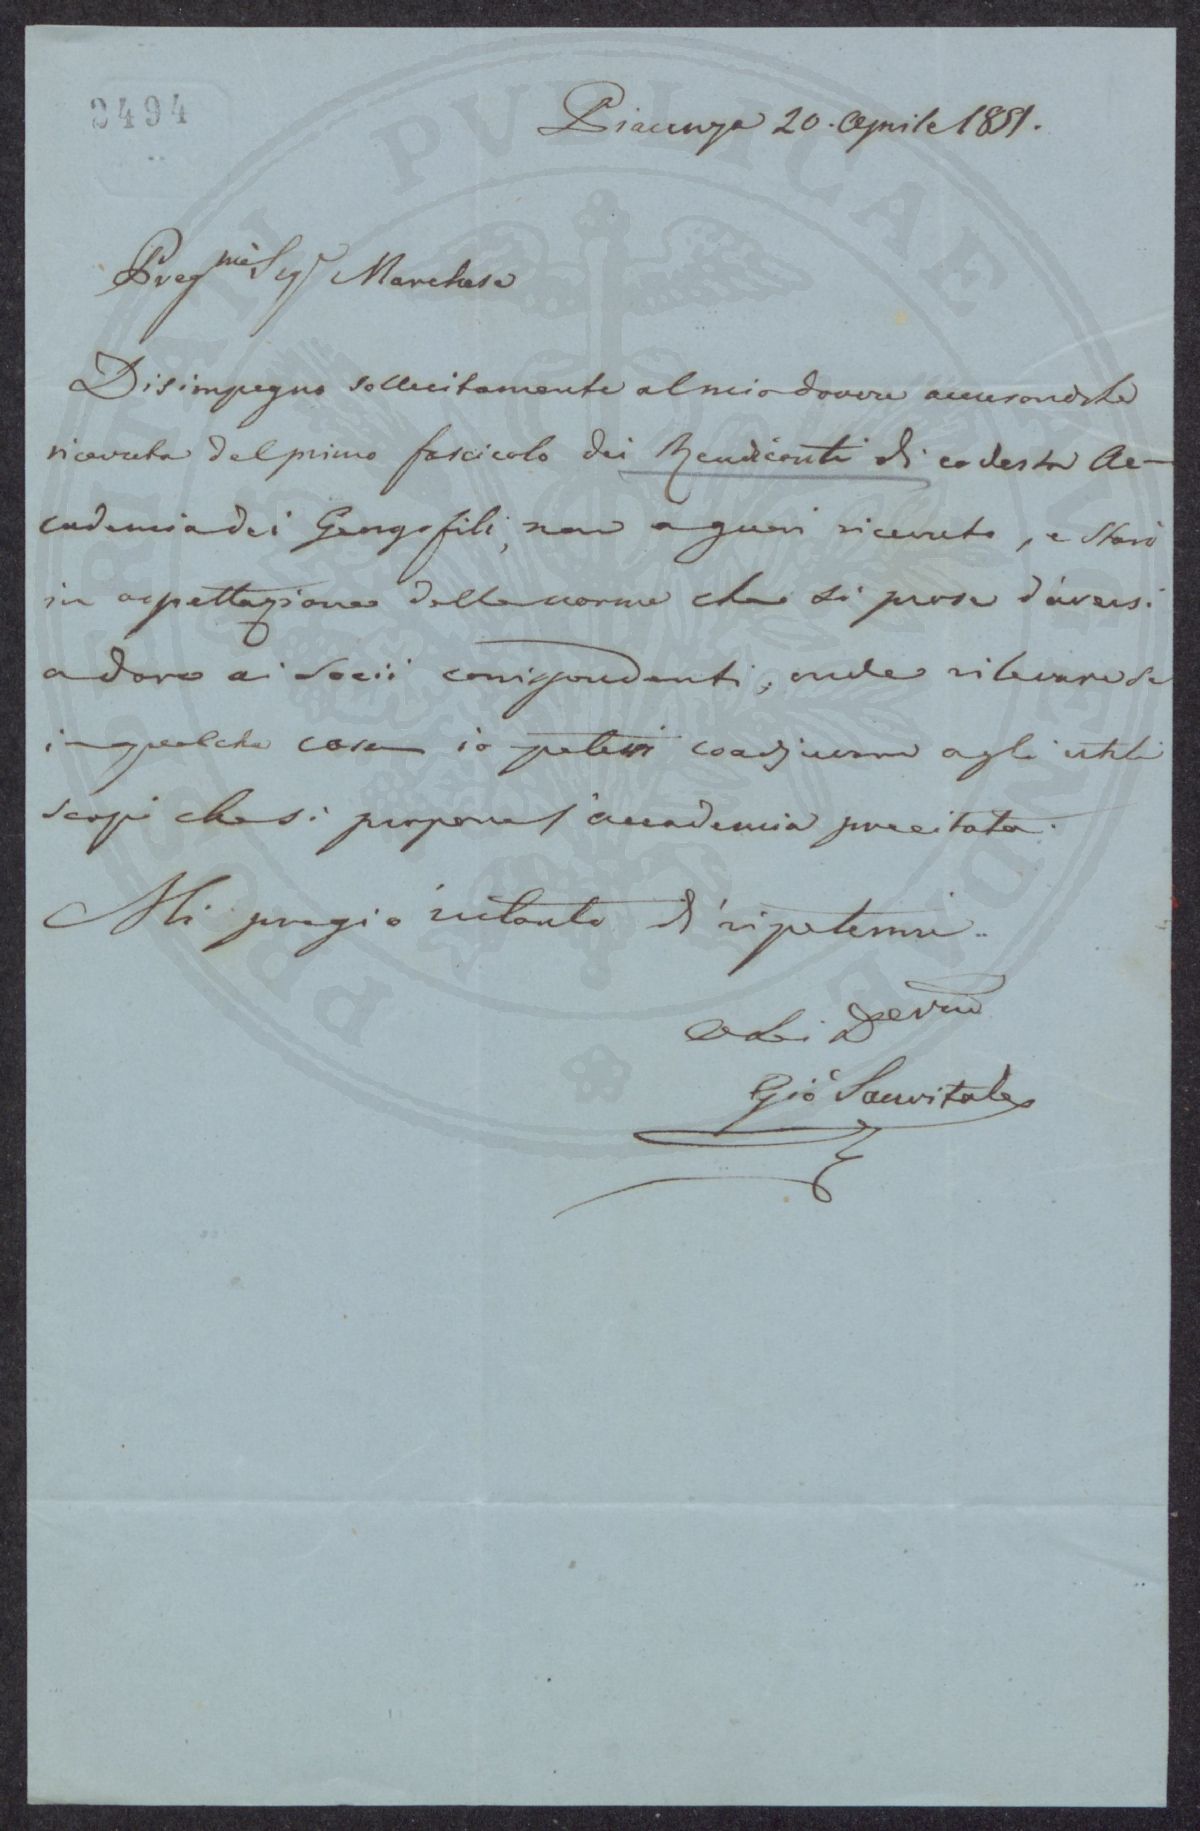 2494
Piacenza 20. Aprile 1851.
Preg.mo Sig.r Marchese
Disimpegno sollecitamente al mio dovere accusando la
ricevuta del primo fascicolo dei Rendiconti di codesta Ac-
cademia dei Georgofili, non a guari ricevuto, e starò
in aspettazione delle norme che si prose d'aversi
a dare ai Socii corrispondenti, onde rilevare se
in qualche cosa io potessi coadjuvare agli utili
scopi che si propone l'accademia precitata.
Mi pregio intanto di ripetermi..
Di Lei Dev.mo
Gio. Sanvitale
PROSPERITATI PVBLICAE AVGENDAE